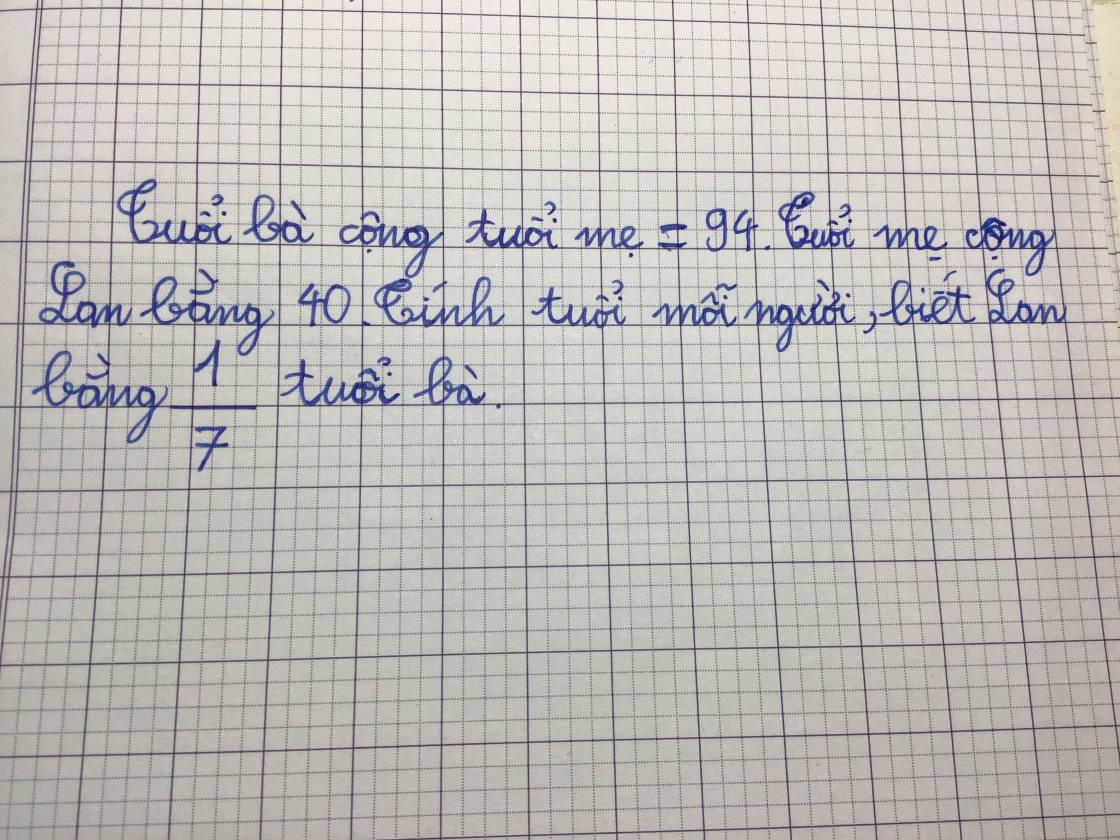 Tuổi bà cộng tuổi mẹ = 94. Tuổi mẹ cộng
Lan bằng 40. Tính tuổi mỗi người, biết Lan
bằng 1/7 tuổi bà.